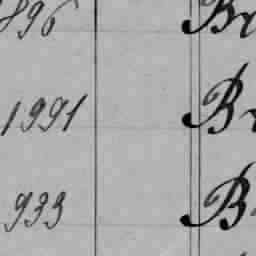 896 B
1991 B
933 B